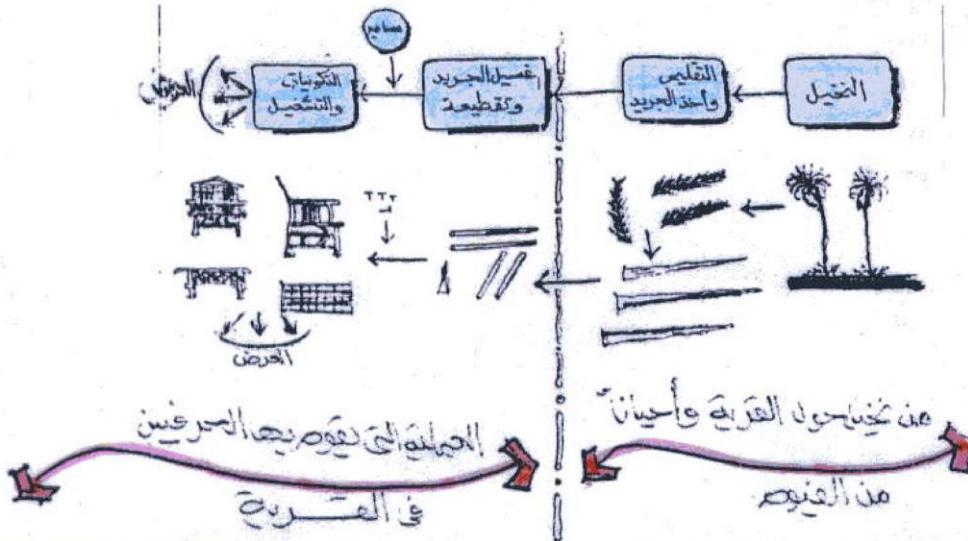 النخيل
التقليم
وأخذ الجريد
غسيل الجريد
وتقطيعة
مسامير
التكوينات
والتشغيل
العرض
العرض
من نخيل حول القرية وأحياناً
من الفيوم
العملية التى يقوم بها الحرفيين
فى القرية